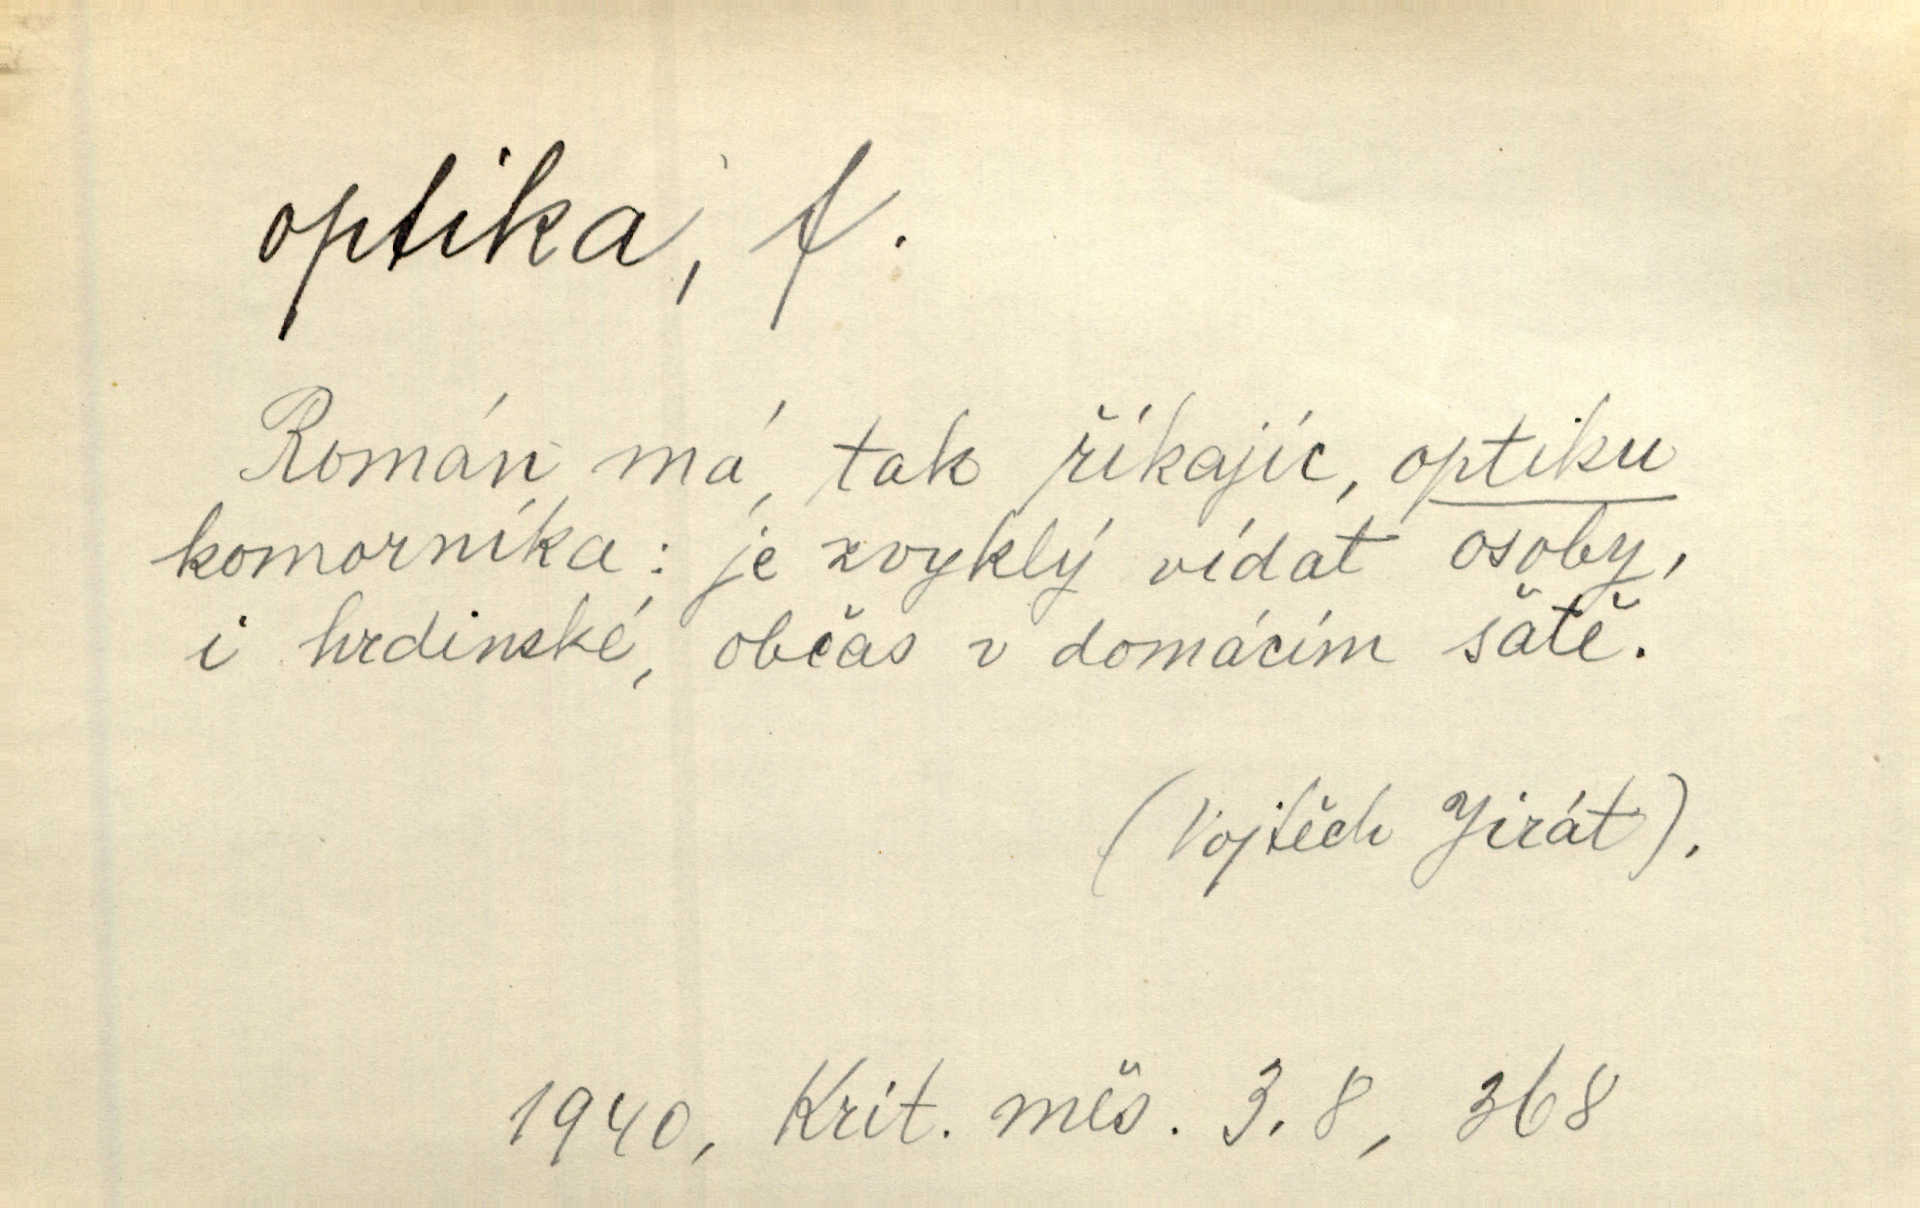 optika, f.
Román má, tak říkajíc, optiku
komorníka: je zvyklý vídat osoby,
i hrdinské, občas v domácím šatě.
(Vojtěch Jirát).
1940, Krit. měs. 3. 8, 368